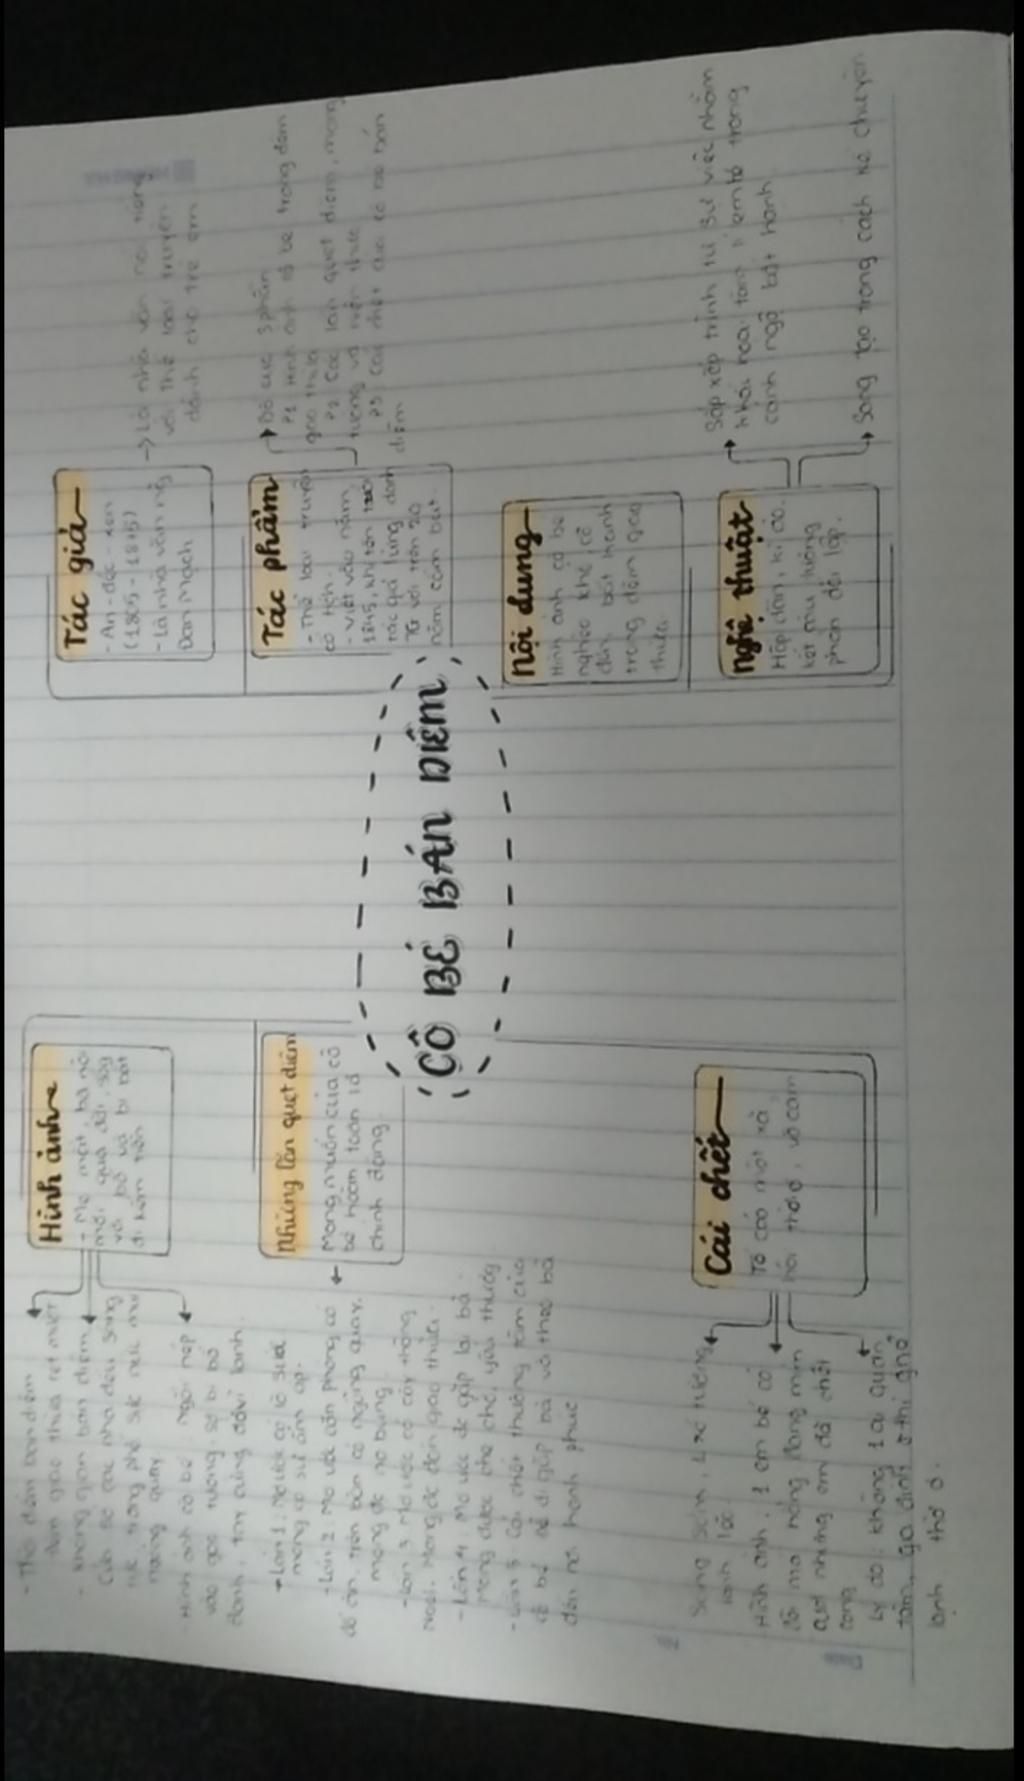 CÔ BÉ BÁN DIÊM
Hình ảnh
- Mẹ mất, bà nội
mới qua đời, sống
với bố và bị bắt
đi kiếm tiền
- Thđ đêm bán diêm
đêm giao thừa rét mướt
- không gian bán diêm
Cửa sổ các nhà đều sáng
rực, trong phố sực nức mùi
ngỗng quay
- Hình ảnh cô bé: ngồi nép
vào góc tường, sợ bị bố
đánh, tay cứng đờ vì lạnh.
Những lần quẹt diêm
Mong muốn của cô
bé hoàn toàn là
chính đáng.
- Lần 1: Mơ ước có lò sưởi
mong có sự ấm áp.
- Lần 2: Mơ ước căn phòng có
đồ ăn, trên bàn có ngỗng quay.
mong đc no bụng.
- Lần 3: Mơ ước có cây thông
Noel. Mong đc đón giao thừa.
- Lần 4: Mơ ước đc gặp lại bà.
Mong được che chở, yêu thương
- Lần 5: Cái chết thương tâm của
cô bé để đi gặp bà và theo bà
đến nơi hạnh phúc
Cái chết
Tố cáo một xã
hội thờ ơ, vô cảm
Sáng sớm, ở xó tường
lạnh lẽo
Hình ảnh: 1 em bé có
đôi má hồng đang mỉm
cười nhưng em đã chết
cóng
Lý do: không 1 ai quan
tâm, gia đình thì ghẻ
lạnh thờ ơ.
Tác giả
- An-đéc-xen
(1805 - 1875)
- Là nhà văn ng
Đan Mạch
→ Là nhà văn nổi tiếng
với thể loại truyện
dành cho trẻ em
Tác phẩm
- Thể loại: truyện
cổ tích.
- Viết vào năm
1845, khi tên tuổi
tác giả lừng danh
TG với trên 20
năm cầm bút.
Bố cục 3 phần
P1 Hình ảnh cô bé trong đêm
giao thừa
P2 Các lần quẹt diêm, mộng
tưởng và hiện thực
P3 Cái chết của cô bé bán
diêm
Nội dung
Hình ảnh cô bé
nghèo khổ, cô
đơn, bất hạnh
trong đêm giao
thừa.
Nghệ thuật
Hấp dẫn, kì ảo.
kết cấu tương
phản đối lập.
Sắp xếp trình tự sự việc nhằm
khắc hoạ tâm lí em bé trong
cảnh ngộ bất hạnh
Sáng tạo trong cách kể chuyện